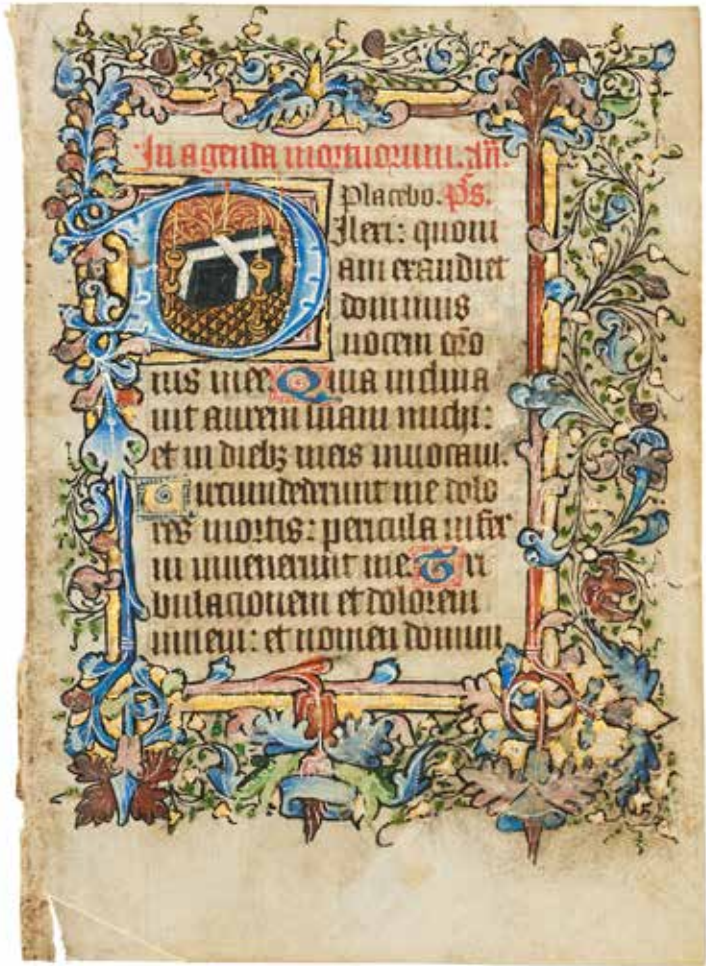 In agenda mortuorum. añ.
Placebo. p̄s.
Dilexi: quoni
am exaudiet
dominus
uocem or̄o
nis mee. Quia inclina
uit aurem suam michi:
et in diebꝫ meis inuocaui.
Circumdederunt me dolo
res mortis: pericula infer
ni inuenerunt me. Tri
bulacionem et dolorem
inueni: et nomen domini